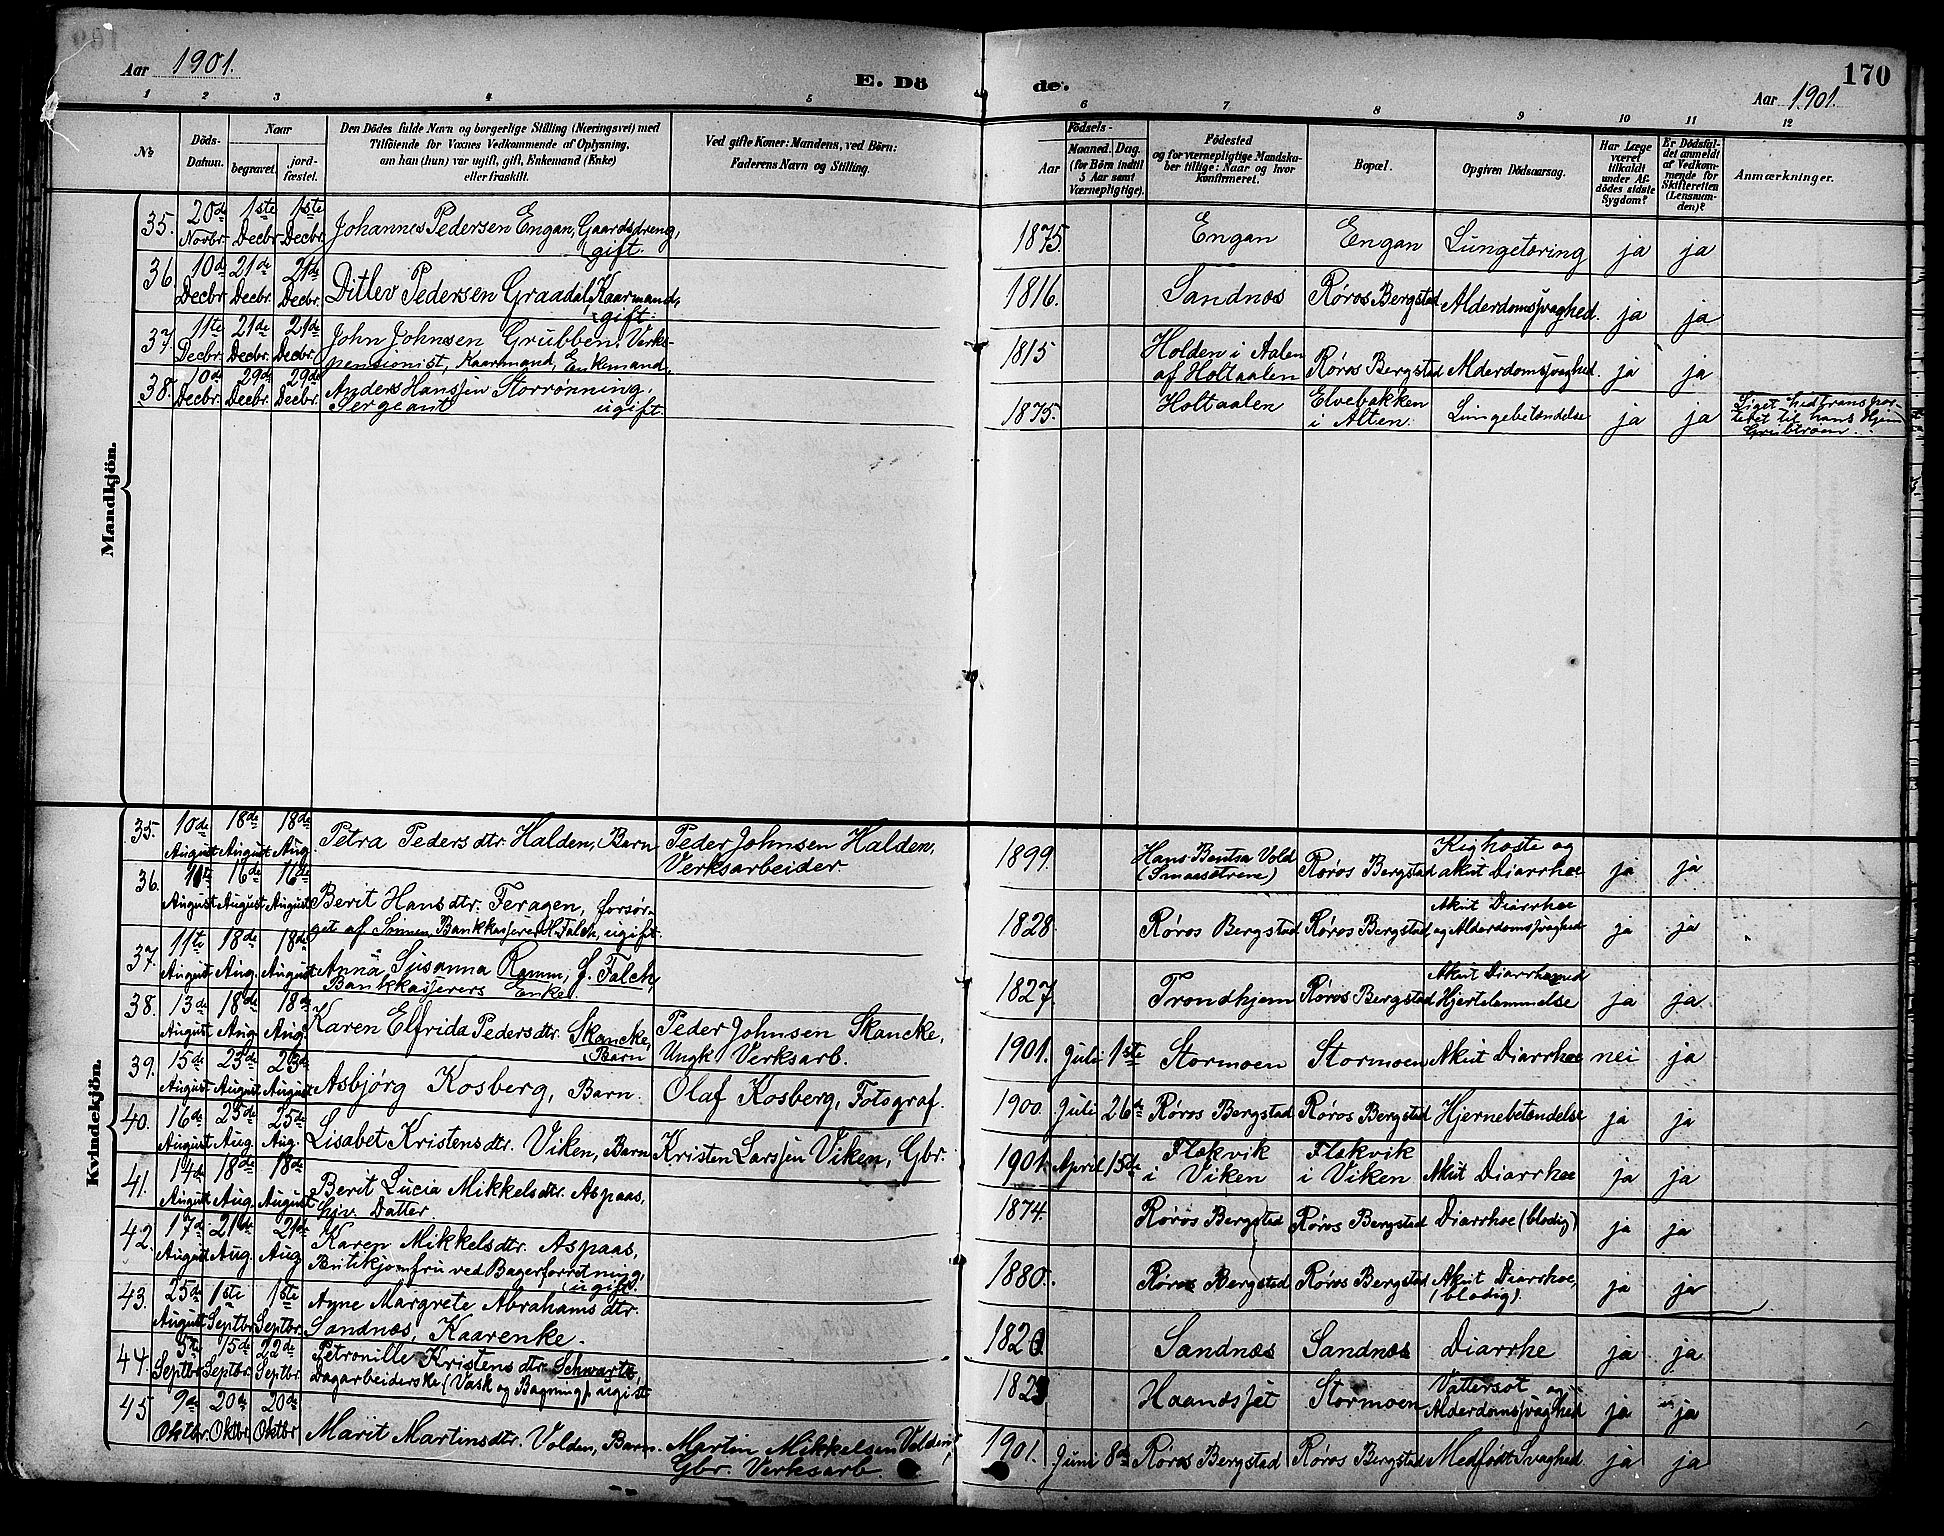 Aar 1901. E. Dö de. Aar 1901. 170
1 2 3 4 5 6 7 8 9 10 11 12
No
Döds-Datum.
Naar
begravet. jordfæstet.
Den Dödes fulde Navn og borgerlige Stilling (Næringsvei) med
Tilföiende for Voxnes Vedkommende af Oplysning,
om han (hun) var ugift, gift, Enkemand (Enke)
eller fraskilt.
Ved gifte Koner: Mandens, ved Börn:
Faderens Navn og Stilling.
Födsels-
Aar Maaned. Dag.
(for Börn indtil
5 Aar samt
Værnepligtige).
Födested
og for værnepligtige Mandska-
ber tillige: Naar og hvor
konfirmeret.
Bopæl.
Opgiven Dödsaarsag.
Har Læge
været
tilkaldt
under Af-
dödes sidste
Sygdom?
Er Dödsfal-
det anmeldt
af Vedkom-
mende for
Skifteretten
(Lensman-
den)?
Anmærkninger.
Mandkjön.
35. 20de Novbr. 1ste Decbr. 1ste Decbr. Johannes Pedersen Engan, Gaardsdreng, gift. 1875. Engan Engan Lungetæring ja ja
36. 10de Decbr. 21de Decbr. 21de Decbr. Ditlev Pedersen Graadal, Kaarmand, gift. 1816. Sandnæs Røros Bergstad Alderdomssvaghed. ja ja
37. 11te Decbr. 21de Decbr. 21de Decbr. John Johnsen Grubben, Verks-
pensionist, Kaarmand, Enkemand. 1815 Holden i Aalen
af Holtaalen Røros Bergstad Alderdomssvaghed. ja ja
38. 10de Decbr. 29de Decbr. 29de Decbr. Anders Hanssen Storrønning,
Sergeant ugift. 1875. Holtaalen Elvebakken
i Alten. Lungebetændelse ja ja Liget hedtranspor-
teret til hans Hjem
Kvindekjön.
35. 10de August 18de August 18de Aug. Petra Pedersdtr. Halden, Barn Peder Johnsen Halden,
Verksarbeider. 1899. Hans Bentsa Vold
(Smaasetrene) Røros Bergstad Kighoste og
akut Diarrhoe ja ja
36. August 16de August 16de August Berit Hansdtr. Feragen, forsør-
get af Bankkasserer Falch, ugift. 1828. Røros Bergstad Røros Bergstad Akut Diarrhoe
og Alderdomssvaghed ja ja
37. 11te August 18de Aug. 18de August Anna Susanna Ramm, f. Falch,
Bankkasserers Enke. 1827. Trondhjem Røros Bergstad Akut Diarrhoe med
Hjertelammelse ja ja
38. 13de August 18de Aug. 18de Aug. Karen Elfrida Pedersdtr. Skancke,
Barn Peder Johnsen Skancke,
Ungk Verksarb. 1901. Juli 1ste Stormoen Stormoen Akut Diarrhoe nei ja
39. 15de August 23de August 23de August Asbjörg Kosberg, Barn. Olaf Kosberg, Fotograf. 1900. Juli 26de Røros Bergstad Røros Bergstad Hjernebetændelse ja ja
40. 16de August 25de Aug. 25de Aug. Lisabet Kristensdtr. Viken, Barn Kristen Larssen Viken, Gbr. 1901. April 15de Flækvik
i Viken Flækvik
i Viken Akut Diarrhoe ja ja
41. 14de August 18de Aug. 18de August Berit Lucia Mikkelsdtr. Aspaas,
hjv. Datter. 1874. Røros Bergstad Røros Bergstad Diarrhoe (blodig) ja ja
42. 17de August 21de Aug. 21de Aug Karen Mikkelsdtr. Aspaas,
Butikjomfru ved Bagerforretning,
ugift. 1880. Røros Bergstad Røros Bergstad Akut Diarrhoe,
(blodig). ja ja
43. 25de August 1ste Septbr. 1ste Septbr. Anne Margrete Abrahamsdtr.
Sandnæs, Kaarenke. 1820 Sandnæs Sandnæs Diarrhe ja ja
44. 5te Septbr. 15de Septbr. 22de Septbr. Petronille Kristensdtr. Schwartz,
Dagarbeiderske (Vask og Bagning), ugift 1823 Haanæsset Stormoen Vattersot og
Alderdomssvaghed ja ja
45. 9de Oktbr. 20de Oktbr. 20de Oktbr. Marit Martinsdtr. Volden, Barn. Martin Mikkelsen Volden,
Gbr. Verksarb. 1901. Juni 8de Røros Bergstad Røros Bergstad Medfødt Svaghed. ja ja